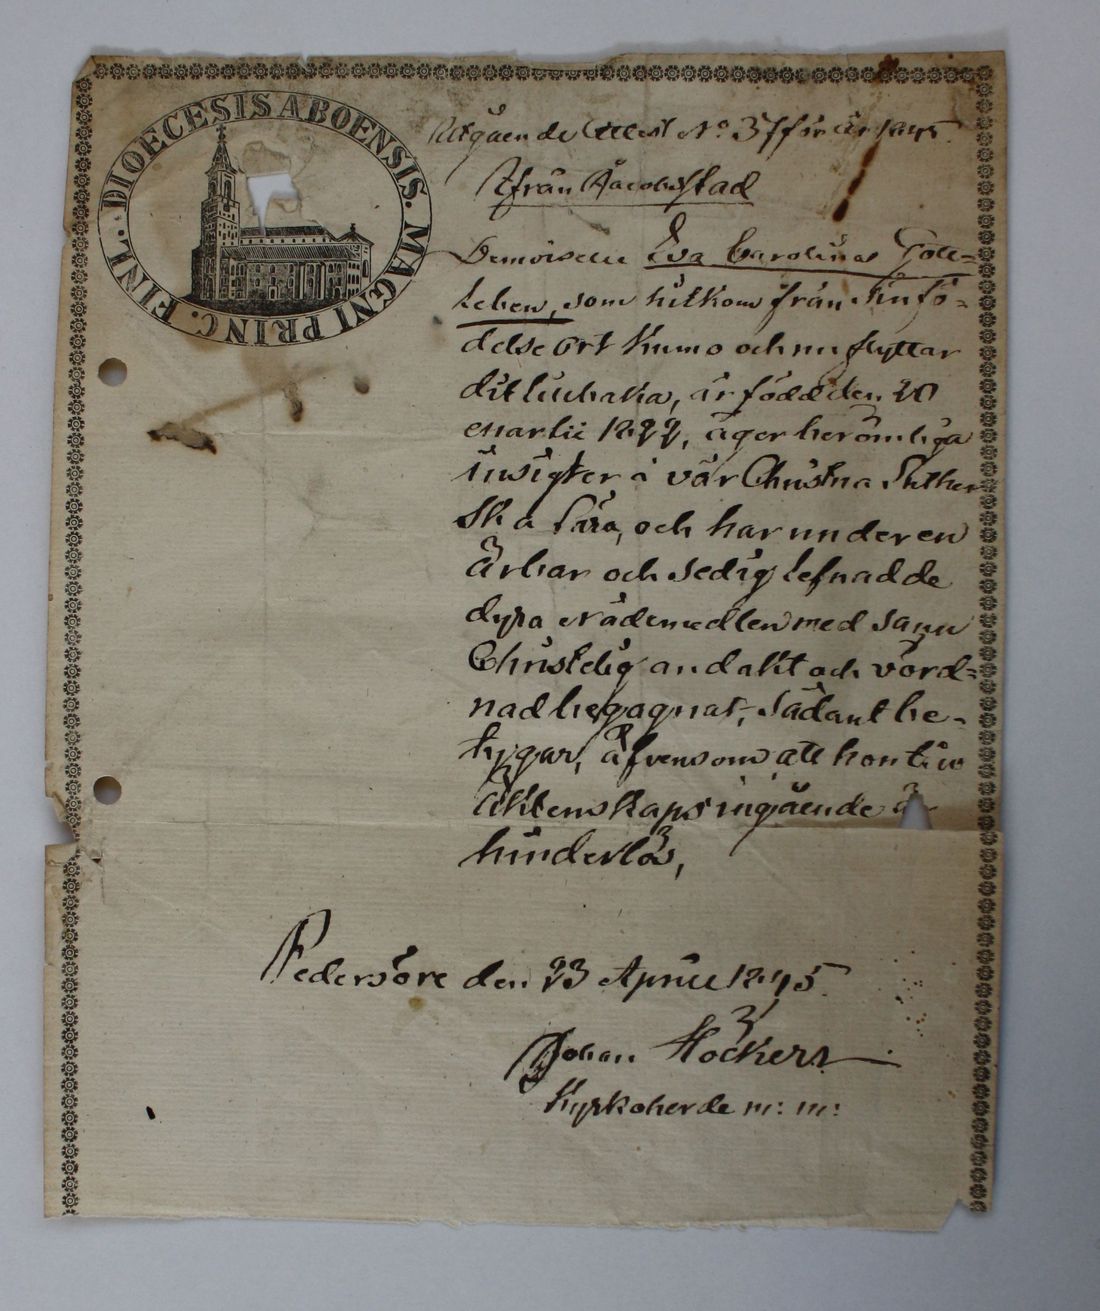 DIOECESIS ABOENSIS. MAGNI PRINC. FINL.
Utgående Attest No 37 för år 1845.
ifrån Jacobstad
Demoiselle Eva Carolina Gott-
leben, som hitkom från sin fö-
delse ort Kumo och nu flyttar
dit tillbaka, är född den 20
Martii 1822, äger berömliga
insigter i vår Christna Luther
ska Lära, och har under en
ärbar och sedig lefnad de
dyra Nådemedlen med sann
Christelig andakt och vörd-
nad begagnat, Sådant be-
tygar, äfvensom att hon till
äktenskaps ingående är
hinderlös,
Pedersöre den 23 Aprill 1845.
Johan Hockert
Kyrkoherde m: m: